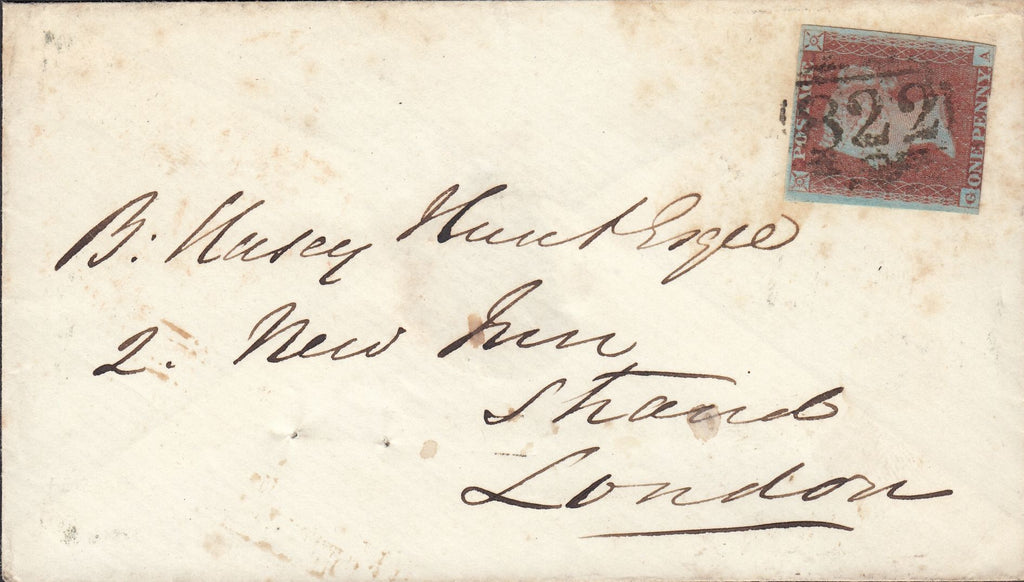 POSTAGE
ONE PENNY
G
A
822
B: Hasey Hunt Esqre
2. New Inn
Strand
London